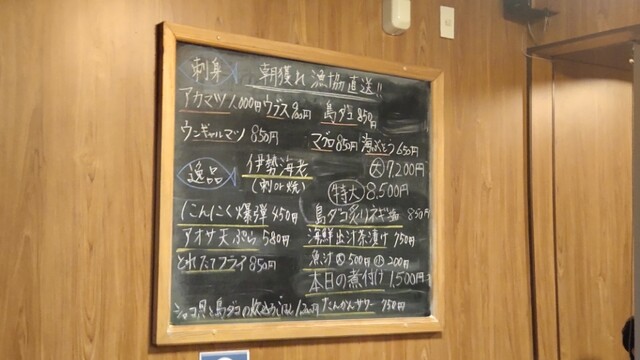 刺身 朝獲れ 漁協直送!!
アカマツ 1,000円 ウブス 800円 島ダコ 850円
ウンギャルマツ 850円 マグロ 850円 海ぶどう 650円
逸品 伊勢海老 大 7,200円
(刺or焼) 特大 8,500円
にんにく爆弾 450円 島ダコ炙りネギ塩 850円
アオサ天ぷら 580円 海鮮出汁茶漬け 950円
とれたてフライ 850円 魚汁 大 500円 小 200円
本日の煮付け 1,500円
シャコ貝と島ダコの炊込ごはん たんかんサワー 750円